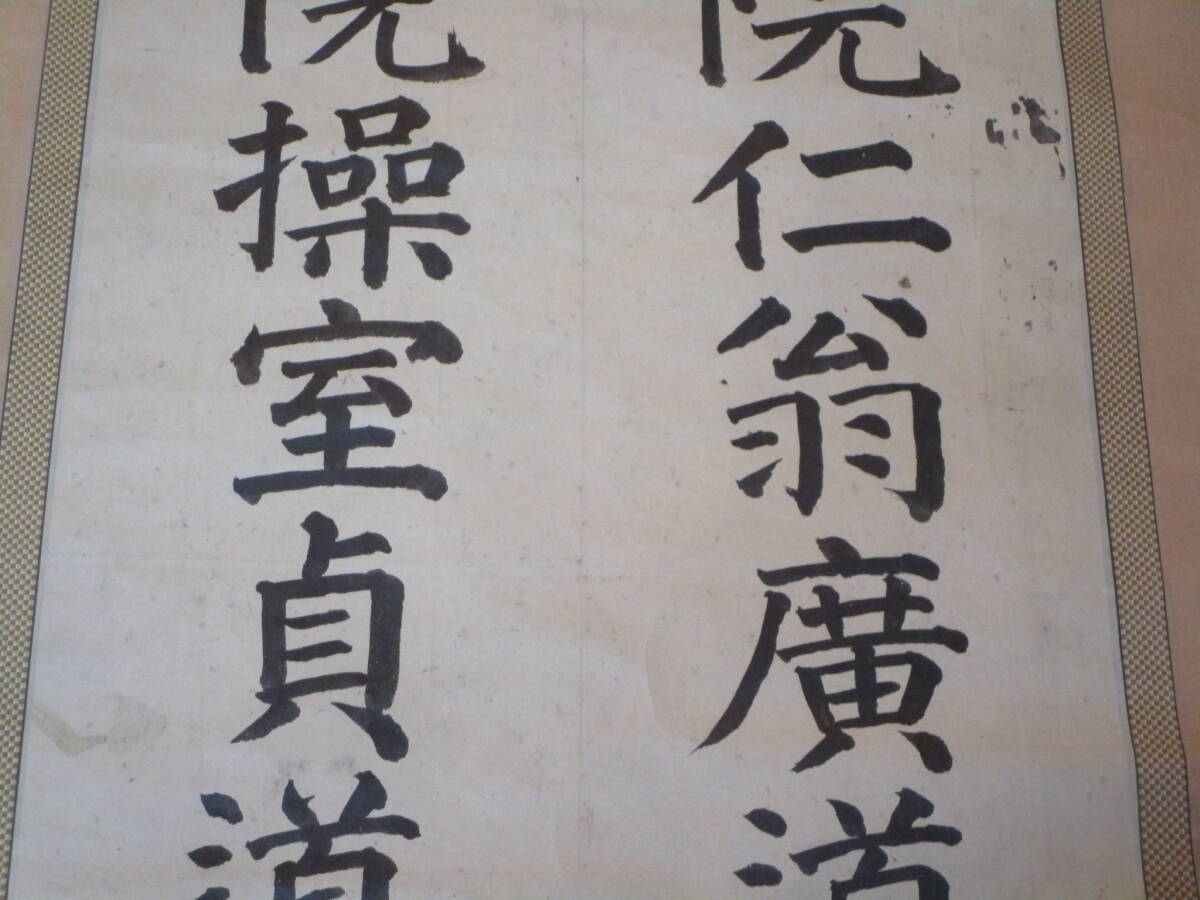 院仁翁廣道
院操室貞道